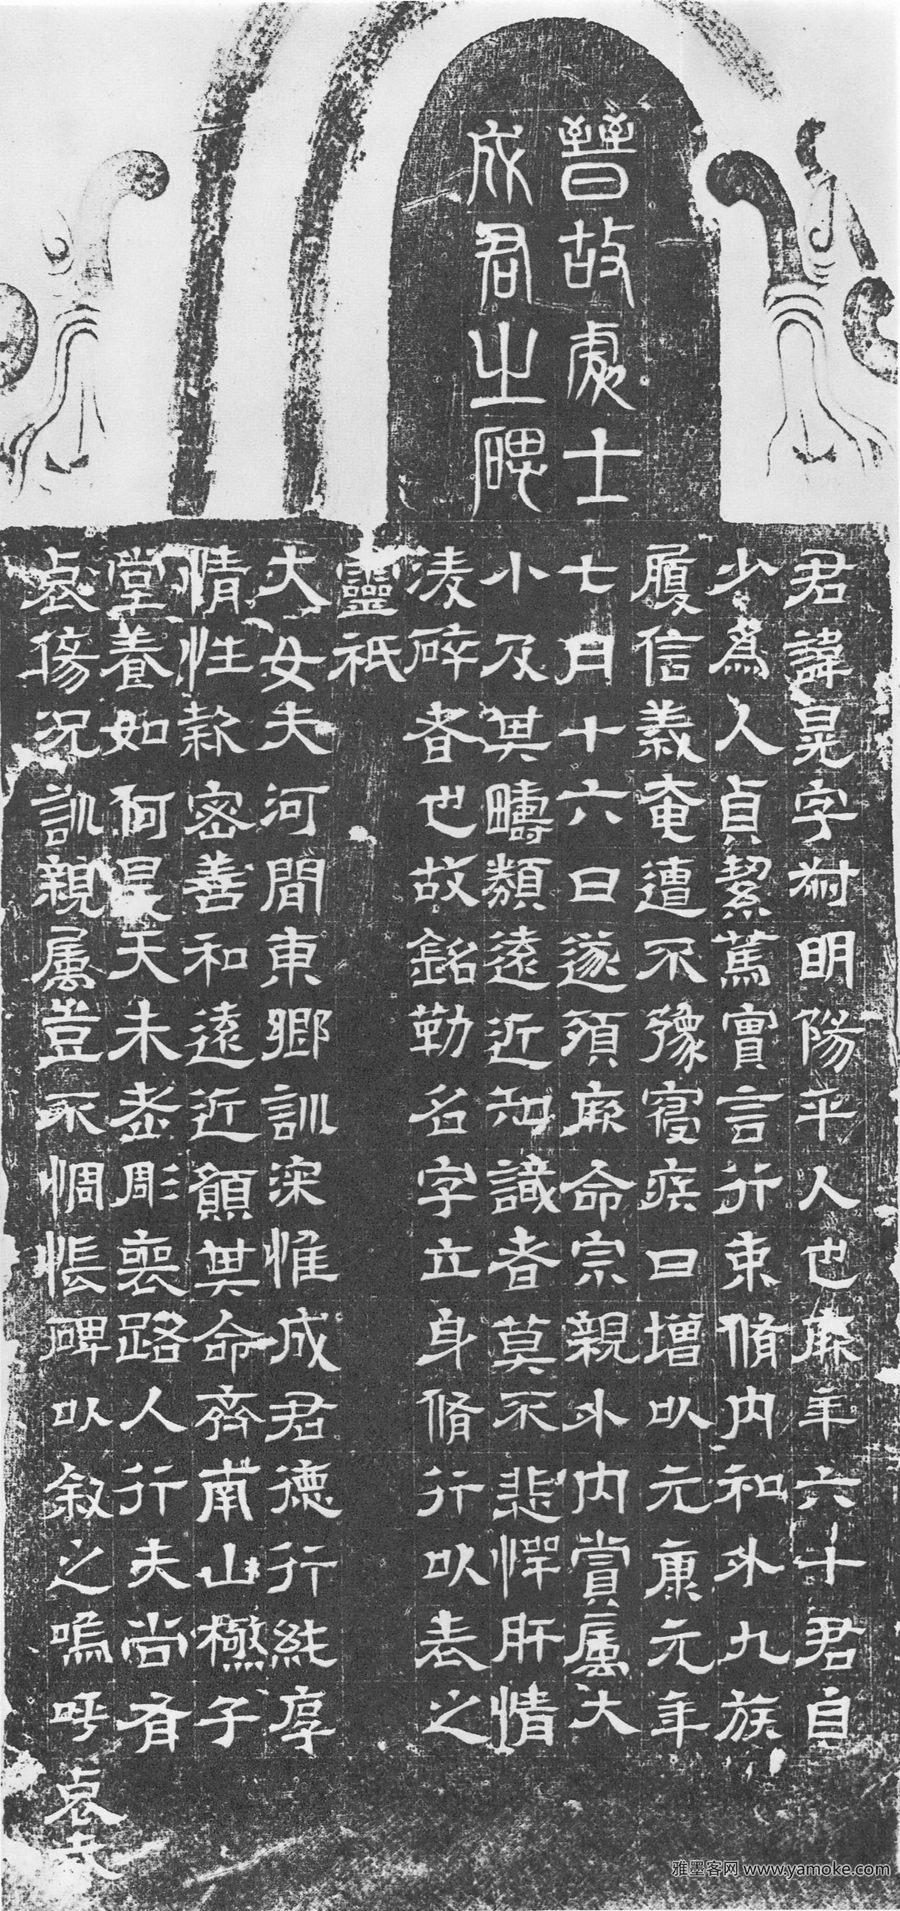 晉故處士
成君之碑
君諱晃字叔明陽平人也厥年六十君自
少爲人貞絜篤實言行束脩内和外九族
履信義奄遭不豫寢疾日增以元康元年
七月十六日遂殞厥命宗親外内賞属大
小及其疇類遠近知識者莫不悲憚肝情
凌碎者也故銘勒名字立身脩行以表之
靈祇
大女夫河間東鄉訓深惟成君德行純厚
情性款密善和遠近願其命齊南山檄子
堂養如何旻天未老彫喪路人行夫尚有
哀傷况訓親属豈不惆悵碑以叙之嗚呼哀哉
雅墨客网 www.yamoke.com